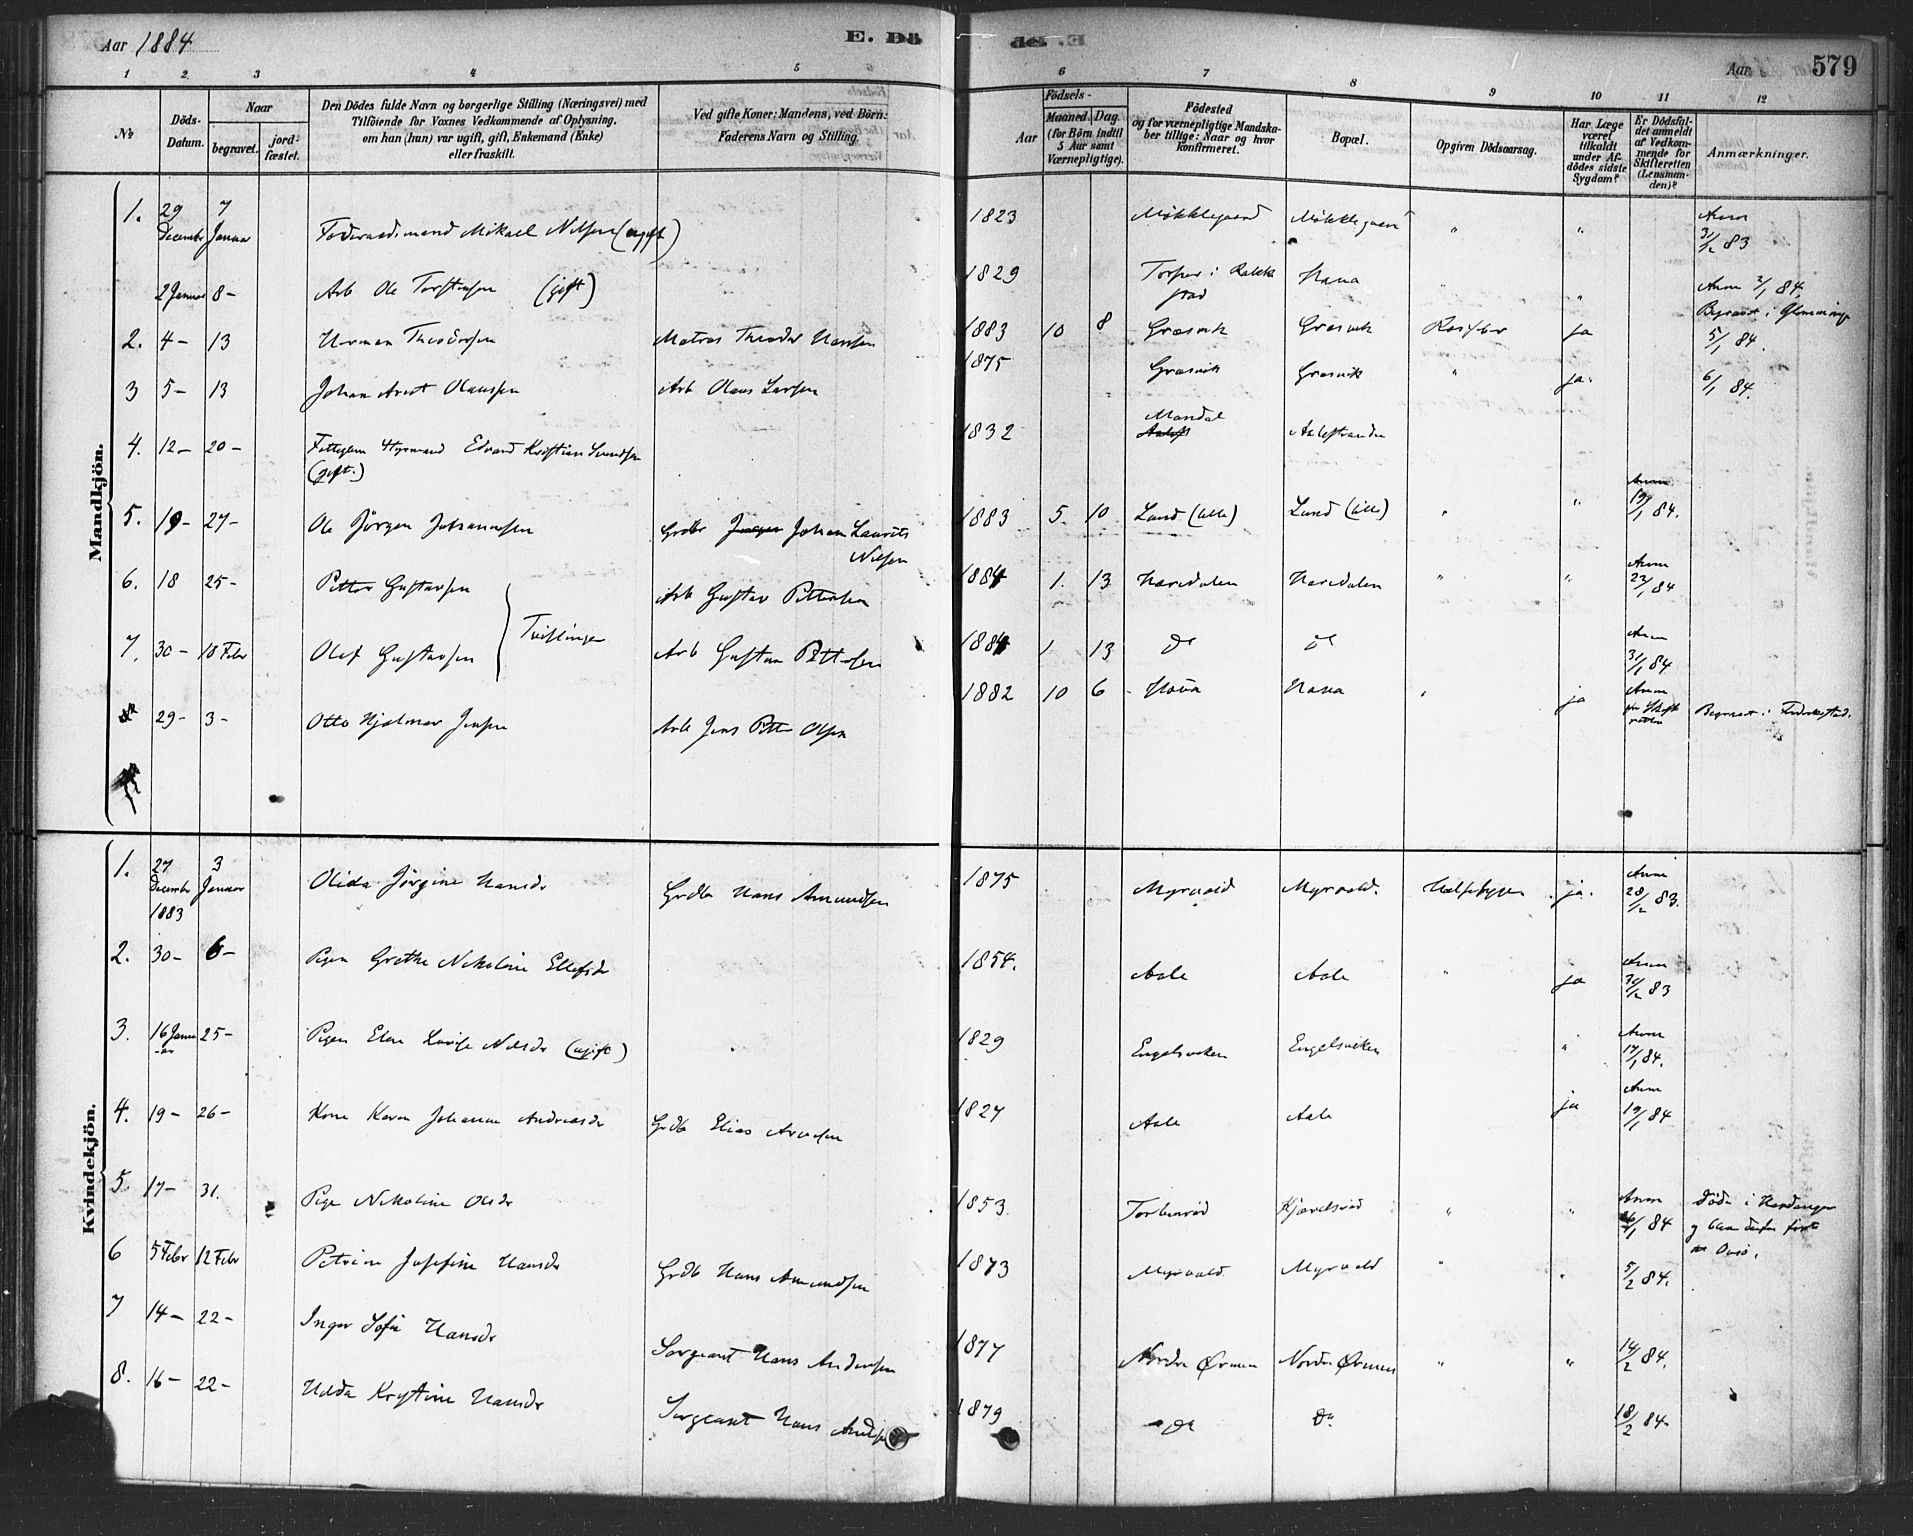 Aar 1884
E. Dö
del. E
Aar
579
1 2 3 4 5 6 7 8 9 10 11 12
No
Döds-Datum.
Naar
begravet.
jord-fæstet.
Den Dödes fulde Navn og borgerlige Stilling (Næringsvei) med
Tilföiende for Voxnes Vedkommende af Oplysning,
om han (hun) var ugift, gift, Enkemand (Enke)
eller fraskilt.
Ved gifte Koner: Mandens, ved Börn:
Faderens Navn og Stilling.
Födsels-
Aar
Maaned. Dag.
(for Börn indtil
5 Aar samt
Værnepligtige).
Födested
og for værnepligtige Mandska-
ber tillige: Naar og hvor
konfirmeret.
Bopæl.
Opgiven Dödsaarsag.
Har Læge
været
tilkaldt
under Af-
dödes sidste
Sygdom?
Er Dödsfal-
det anmeldt
af Vedkom-
mende for
Skifteretten
(Lensman-
den)?
Anmærkninger.
Mandkjön.
1. 29 Decembr 7 Januar Mikael Nilsen (ugift) 1823 " " Anm 31/12 83
2 Januar 8- Arb Ole Torstensen (gift) 1829 Torper i Rakkestad Kana " " Anm 3/1 84
2. 4- 13 Herman Theodorsen Matros Theodor Hansen 1883 10 8 Græsvik Græsvik ja Begravet i Glemminge 5/1 84.
3 5- 13 Johan Arvt Olaussen Arb Olaus Larsen 1875 Græsvik Græsvik " ja. 6/1 84.
4. 12- 20- Edvard Kristian Svendsen (gift.) 1832 Mandal Aalestranden
5. 19- 27- Ole Jörgen Johannesen Grdbr Johan Laurits Nilsen 1883 5. 10 Lund (lille) Lund (lille) " " Anm 19/1 84.
6. 18 25- Petter Gustavsen Tvillinger Arb Gustav Pettersen 1884 1. 13 Haredalen Haredalen " " Anm 22/1 84
7. 30- 18 Febr Olaf Gustavsen Arb Gustav Pettersen 1884 1 13 Do Do Anm 31/1 84
29- 3- Otto Hjalmar Jensen Arb Jens Petter Olsen 1882 10 6 Kana " ja Anm Begravet i Fredrikstad.
Kvindekjön.
1. 27 Decembr 1883 3 Januar Olida Jörgine Hansdr Grdb Hans Amundsen 1875 Myrvold Myrvold. Halsbysen ja. Anm 28/12 83.
2. 30- 6- Pigen Grethe Nikoline Ellefsdr 1854. Aale Aale " ja Anm 30/12 83
3. 16 Janu-ar 25- Pigen Elen Lovise Nilsdr (ugift) 1829 Engelsviken Engelsviken " Anm 17/1 84.
4. 19- 26- Kone Karen Johanne Andreasdr Grdb Elias Arnesen 1827 Aale Aale ja Anm 19/1 84
5 17- 31. Pige Nikoline Olsdr 1853. Torbinröd Kjærelsröd " " Anm 26/1 84 Döde i Hardanger
6 5 Febr 12 Febr Petrine Josefine Hansdr Grdb Hans Amundsen 1873 Myrvold Myrvold " " 5/2 84.
7 14- 22- Inger Sofie Hansdr Sergeant Hans Andersen 1877 Nordre Ørmen Nordre Ørmen " " 14/2 84.
8. 16- 22- Hilda Kristine Hansdr Sergeant Hans Andersen 1879 Do Do 18/2 84-